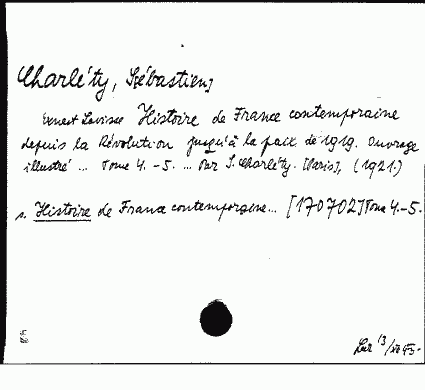 Charléty, Sébastien,
Ernest Lavisse Histoire de France contemporaine
depuis la Révolution jusqu'à la paix de 1919. Ouvrage
illustré ... Tome 4.-5. ... Par S. Charléty. [Paris], (1921.)
s. Histoire de France contemporaine... [170702] Tome 4.-5.